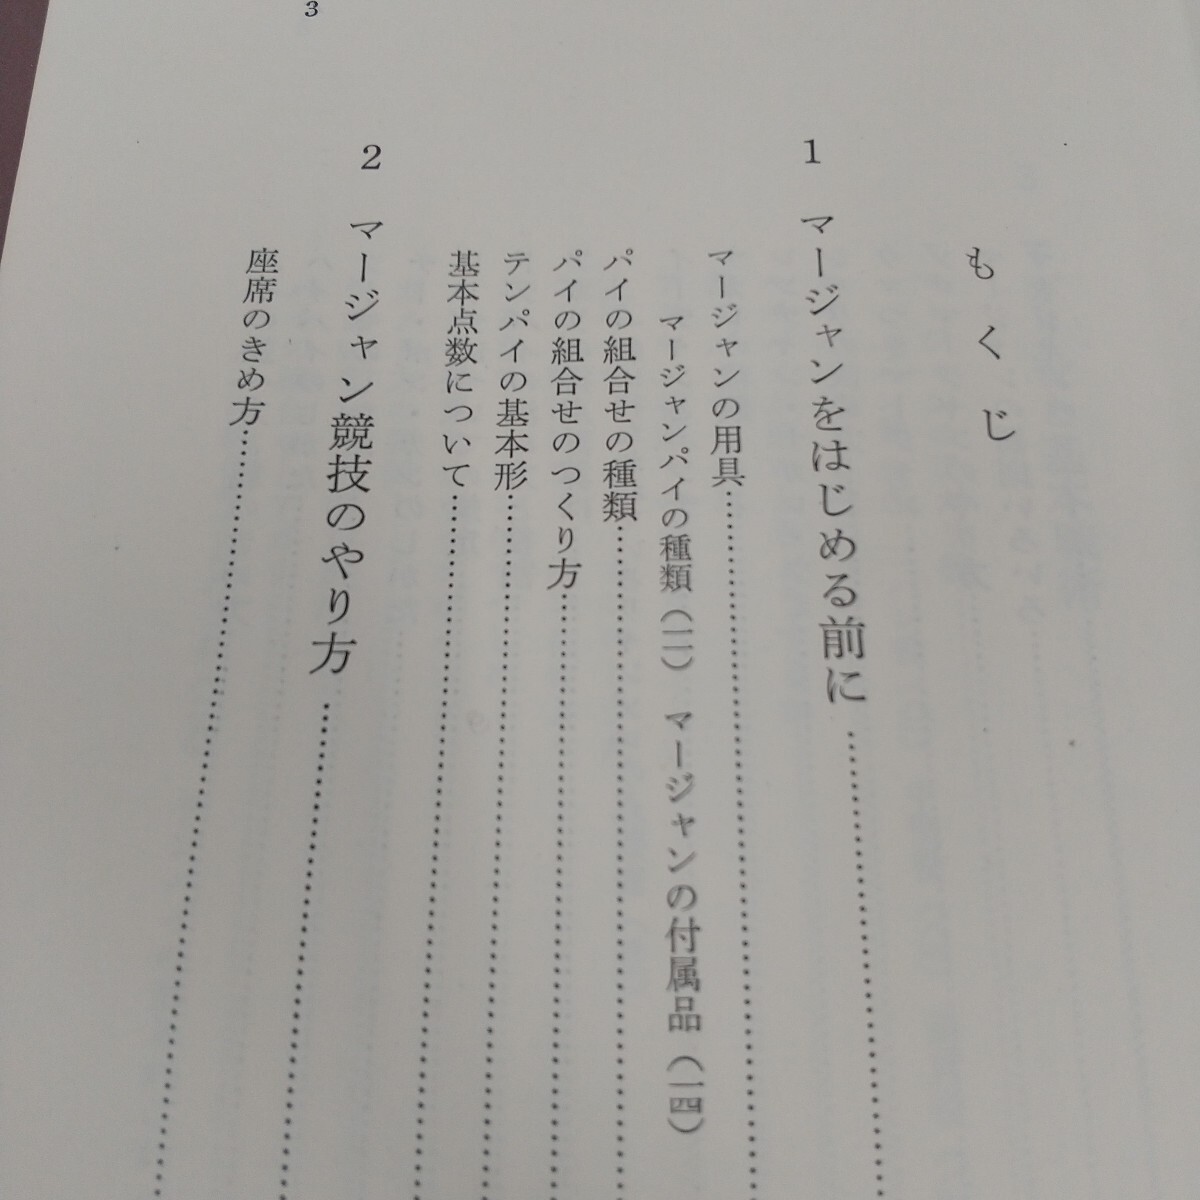 3
もくじ
1 マージャンをはじめる前に
マージャンの用具
マージャンパイの種類(一一) マージャンの付属品(一四)
パイの組合せの種類
パイの組合せのつくり方
テンパイの基本形
基本点数について
2 マージャン競技のやり方
座席のきめ方